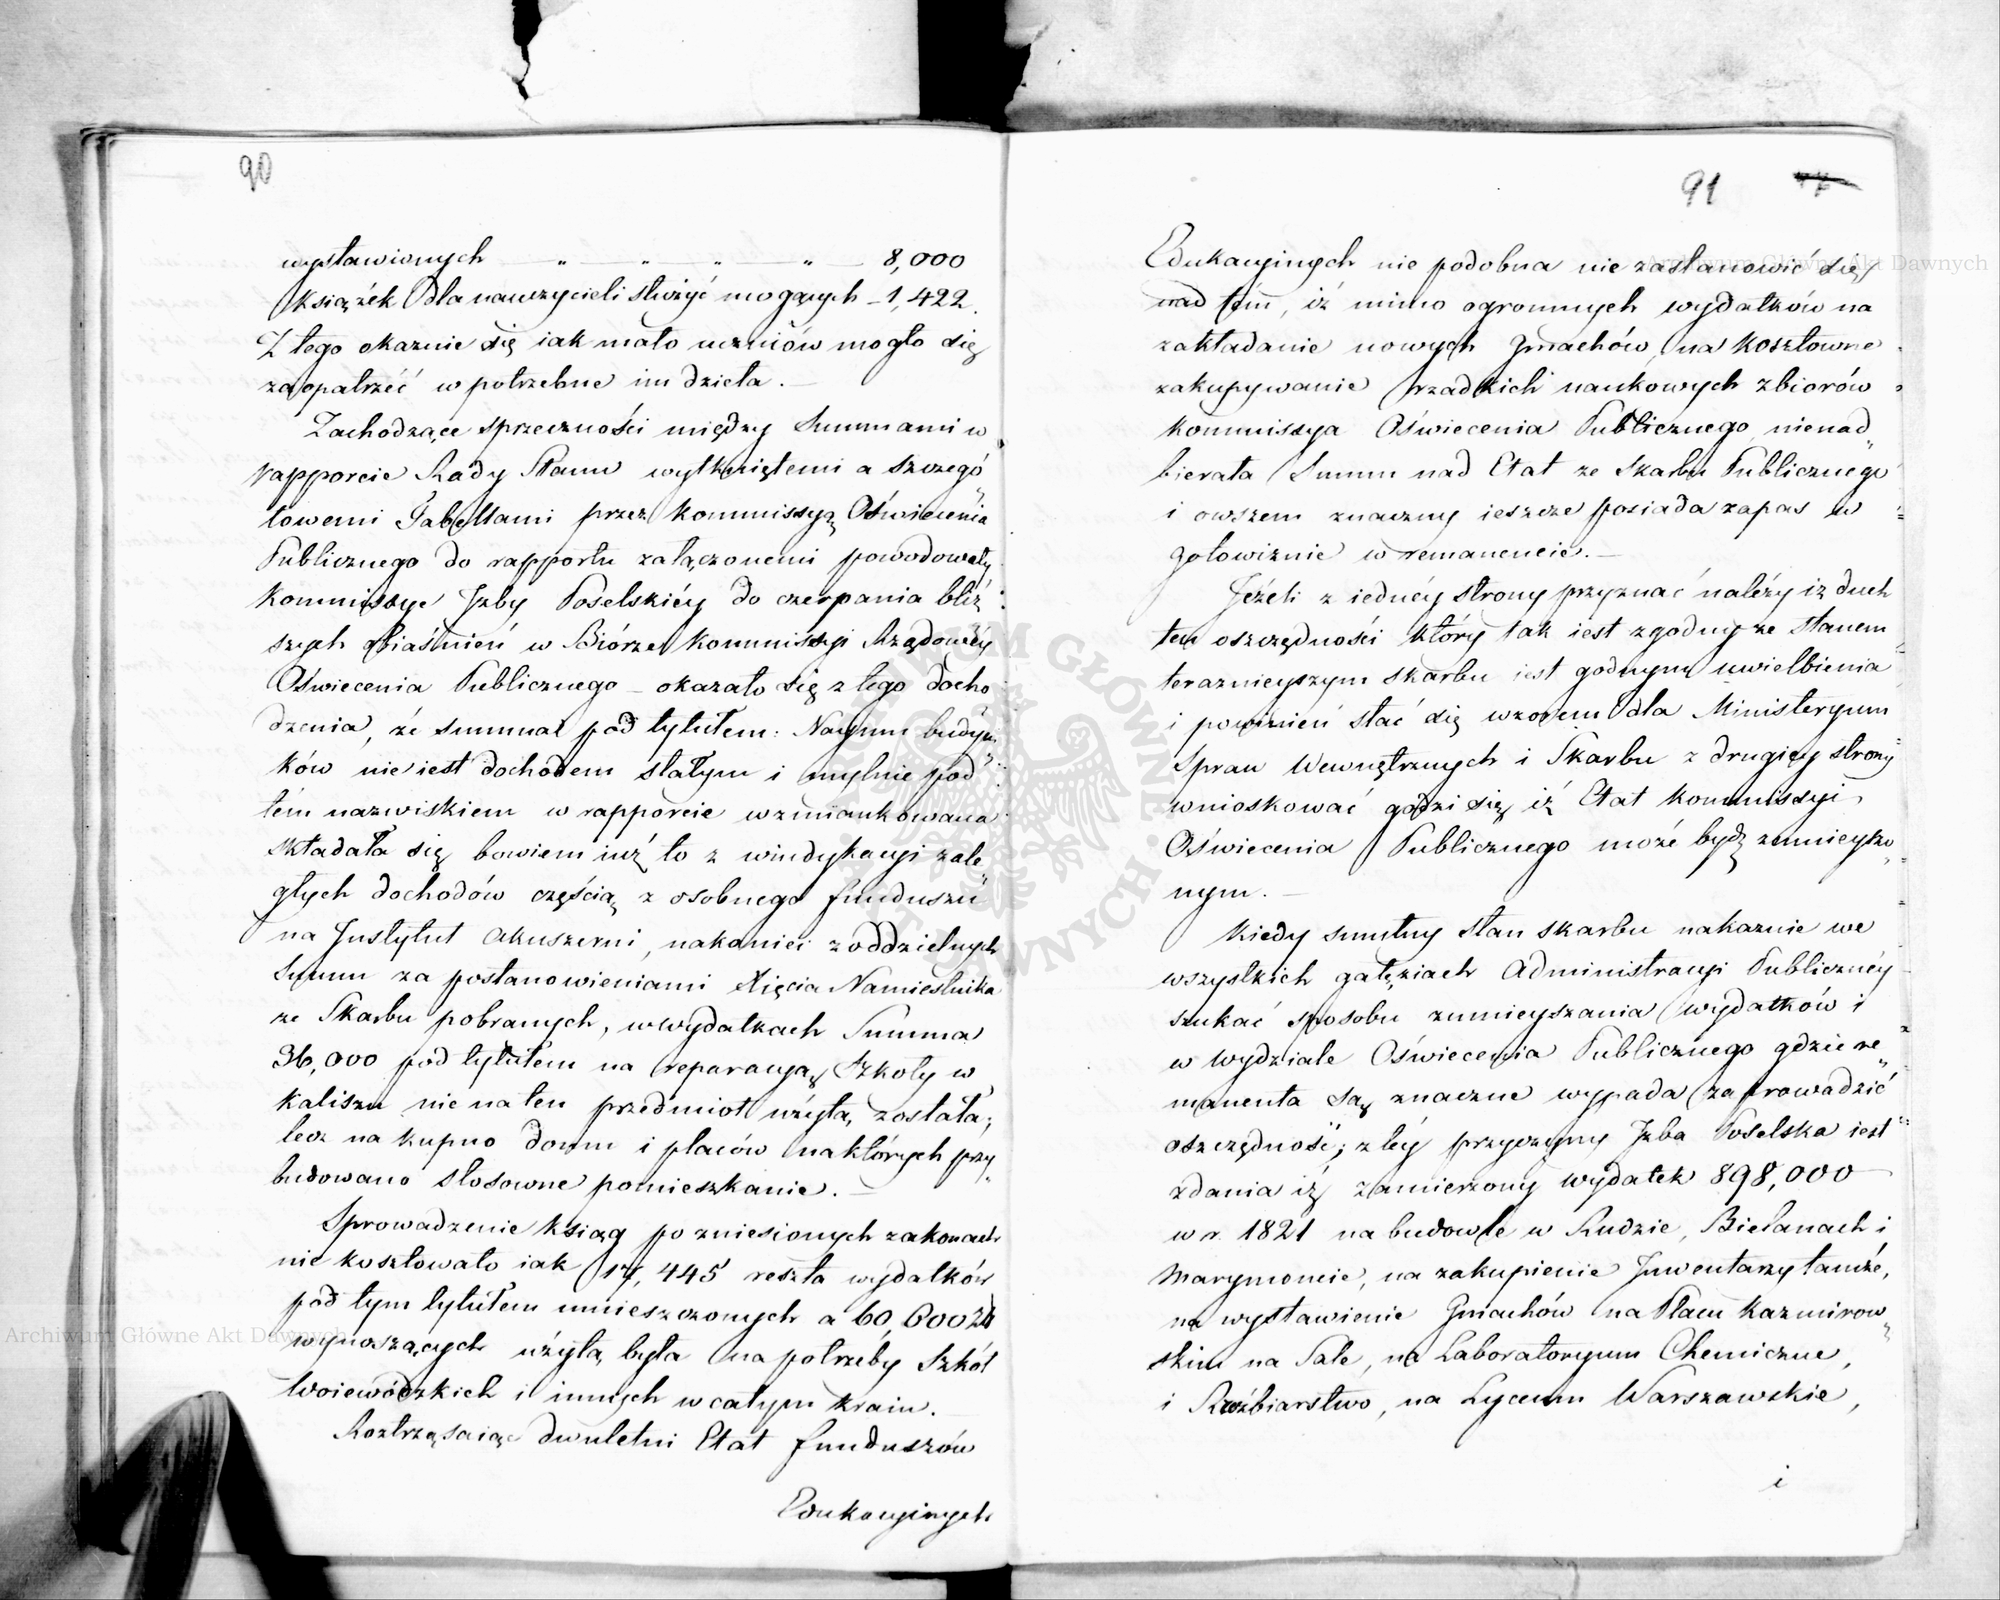 90
wystawionych — „ — „ — „ — „ — 8,000
Książek dla nauczycieli służyć mogących – 1,422.
Z tego okazuie się iak mało uczniów mogło się
zaopatrzéć w potrzebne im dzieła. —
Zachodzące sprzeczności między Summami w
rapporcie Rady Stanu wytkniętemi a szczegó„
łowemi Tabellami przez Kommissyą Oświecenia
Publicznego do rapportu załączonemi powodowały
Kommissye Izby Poselskiéy do czerpania bliż„
szych obiaśnień w Biórze Kommissyi Rządowéy
Oświecenia Publicznego – okazało się z tego docho„
dzenia, że summa pod tytułem: Naymu budyn„
ków nie iest dochodem stałym i mylnie pod
tém nazwiskiem w rapporcie wzmiankowana
składała się bowiem iuż to z windykacyi zale„
głych dochodów częścią z osobnego funduszu
na Instytut Akuszerni, nakoniec z oddzielnych
Summ za postanowieniami Xięcia Namiestnika
ze Skarbu pobranych, w wydatkach Summa
36,000 pod tytułem na reparacyą Szkoły w
Kaliszu nie na ten przedmiot użytą została;
lecz na kupno domu i placów na których przy„
budowano stosowne pomieszkanie. —
Sprowadzenie ksiąg po zniesionych zakonach
nie kosztowało iak 17,445 reszta wydatków
pod tym tytułem umieszczonych a 60,600 zł
wynoszących użytą była na potrzeby Szkół
Woiewódzkich i innych w całym kraiu. —
Roztrząsaiąc dwuletni Etat funduszów
Edukacyinych
91
Edukacyinych nie podobna nie zastanowić się
nad tém, iż mimo ogromnych wydatków na
zakładanie nowych Gmachów na kosztowne
zakupywanie rzadkich naukowych zbiorów
Kommissya Oświecenia Publicznego nienad„
bierała Summ nad Etat ze Skarbu Publicznego
i owszem znaczny ieszcze posiada zapas w
gotowiznie w remanencie. —
Jeżeli z iednéy strony przyznać należy iż duch
ten oszczędności który tak iest zgodny ze stanem
teraznieyszym skarbu iest godnym uwielbienia
i powinień stać się wzorem dla Ministeryum
Spraw Wewnętrznych i Skarbu z drugiéy strony
wnioskować godzi się iż Etat Kommissyi
Oświecenia Publicznego może bydź zmnieyszo„
nym. —
Kiedy smutny stan skarbu nakazuie we
wszystkich gałęziach Administracyi Publicznéy
szukać sposobu zmnieyszania wydatków i
w Wydziale Oświecenia Publicznego gdzie re„
manenta są znaczne wypada zaprowadzić
oszczędność; z téy przyczyny Izba Poselska iest
zdania iż zamierzony wydatek 898,000
w r. 1821 na budowle w Rudzie, Bielanach i
Marymoncie, na zakupienie Inwentarzy tamże,
na wystawienie Gmachów na Placu Kazmirow„
skim na Sale, na Laboratoryum Chemiczne,
i Rzeźbiarstwo, na Lyceum Warszawskie,
i
Archiwum Główne Akt Dawnych
Archiwum Główne Akt Dawnych